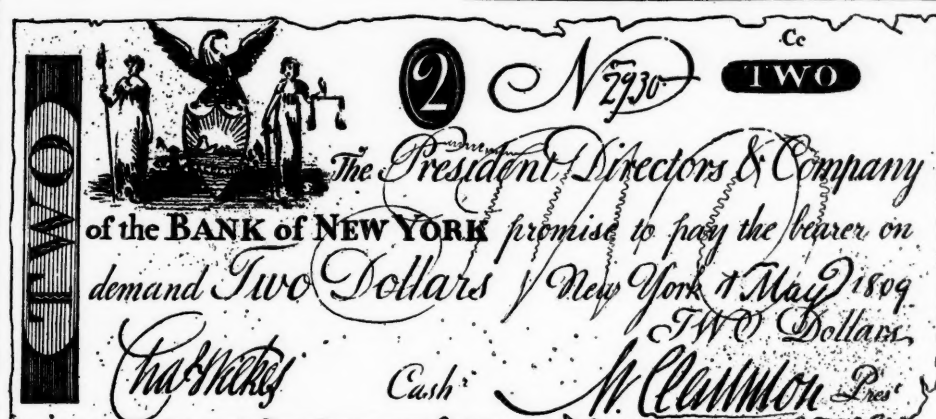 Cc
TWO
2
Nº 2930
TWO
The President Directors & Company
of the BANK of NEW YORK promise to pay the bearer on
demand Two Dollars New York 1 May 1809
TWO Dollars
Chas Wilkes Cashr
Prest